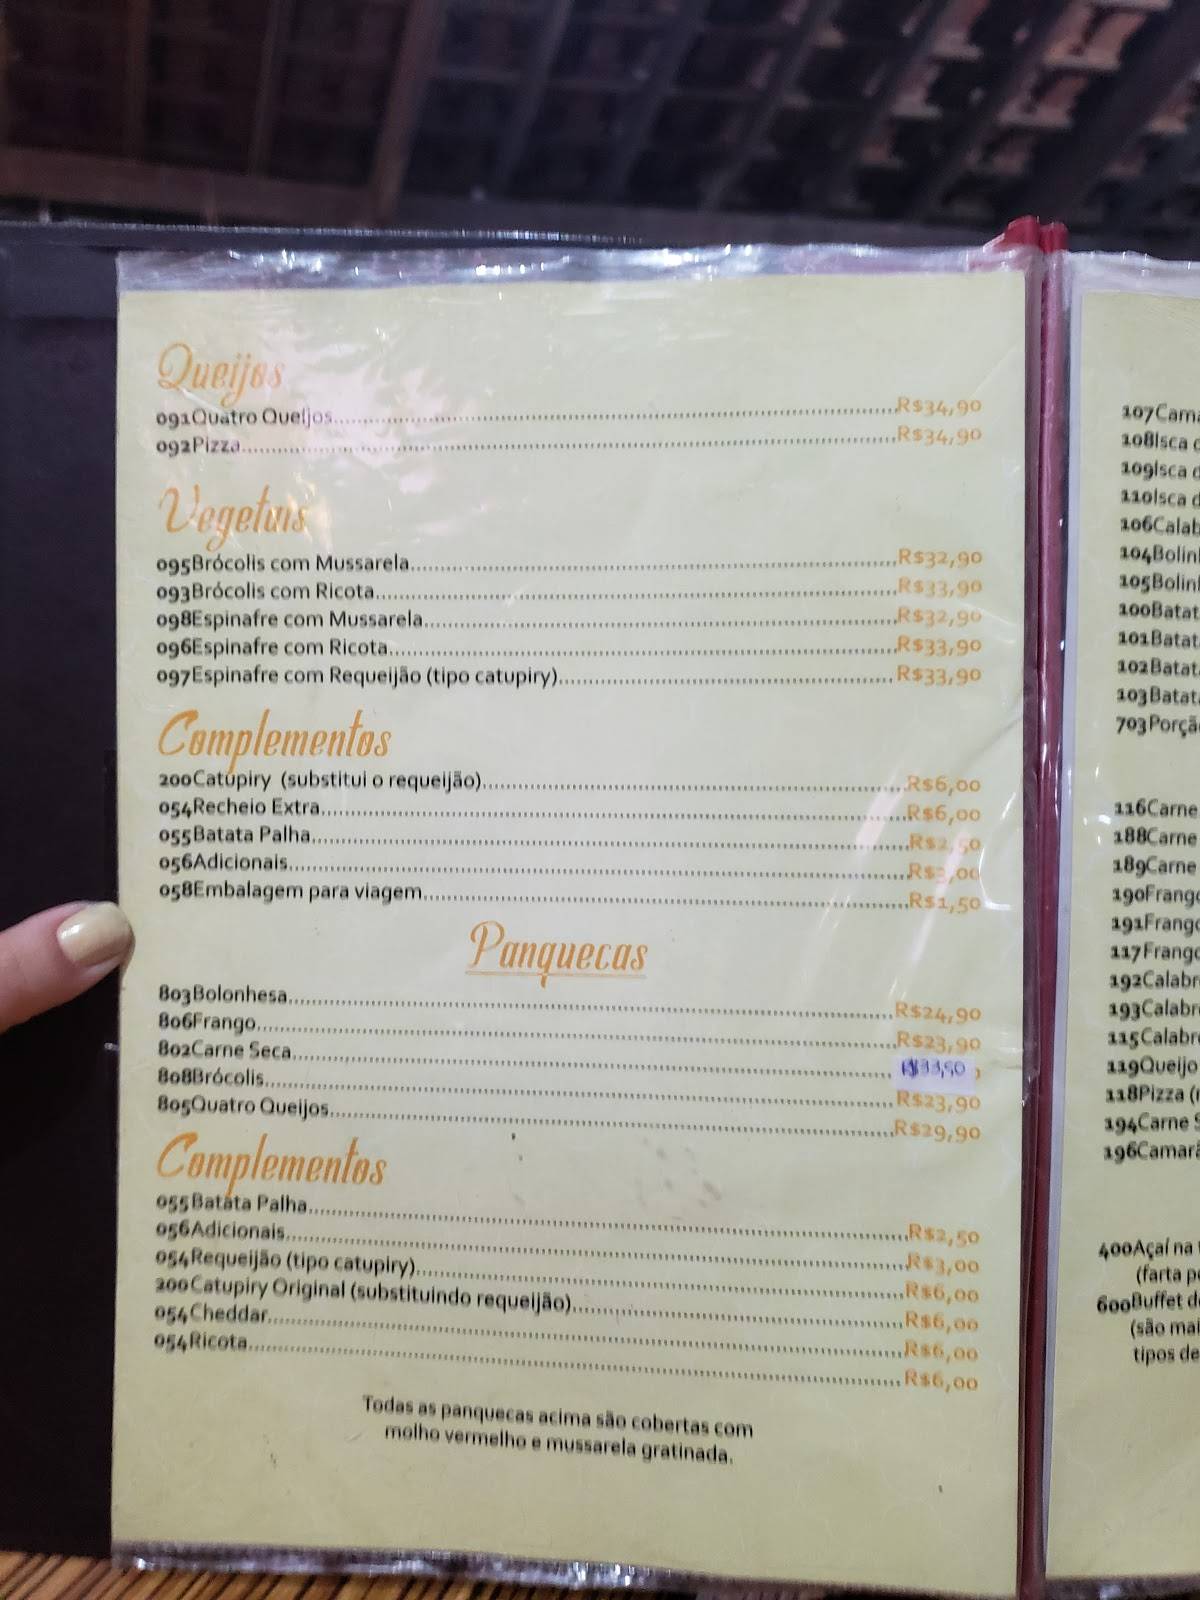 Queijos
091Quatro Queijos R$34,90
092Pizza R$34,90
Vegetais
095Brócolis com Mussarela R$32,90
093Brócolis com Ricota R$33,90
098Espinafre com Mussarela R$32,90
096Espinafre com Ricota R$33,90
097Espinafre com Requeijão (tipo catupiry) R$33,90
Complementos
200Catupiry (substitui o requeijão) R$6,00
054Recheio Extra R$6,00
055Batata Palha R$2,50
056Adicionais R$3,00
058Embalagem para viagem R$1,50
Panquecas
803Bolonhesa R$24,90
806Frango R$23,90
802Carne Seca R$33,50
808Brócolis R$23,90
805Quatro Queijos R$29,90
Complementos
055Batata Palha R$2,50
056Adicionais R$3,00
054Requeijão (tipo catupiry) R$6,00
200Catupiry Original (substituindo requeijão) R$6,00
054Cheddar R$6,00
054Ricota R$6,00
Todas as panquecas acima são cobertas com
molho vermelho e mussarela gratinada.
107Cama
108Isca d
109Isca d
110Isca d
106Calab
104Bolin
105Bolin
100Batat
101Batat
102Batat
103Batat
703Porçã
116Carne
188Carne
189Carne
190Frang
191Frang
117Frang
192Calabr
193Calabr
115Calabr
119Queijo
118Pizza (
194Carne S
196Camar
400Açaí na
(farta p
600Buffet d
(são mai
tipos de